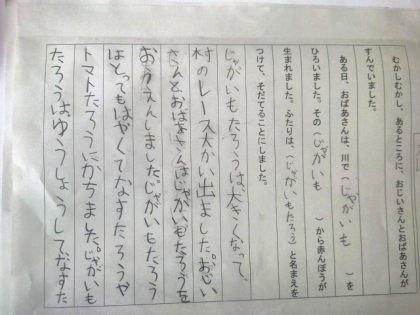 むかしむかし、あるところに、おじいさんとおばあさんが
すんでいました。
ある日、おばあさんは、川で(じゃがいも)を
ひろいました。その(じゃがいも)から赤んぼうが
生まれました。ふたりは、(じゃがいもたろう)と名まえを
つけて、そだてることにしました。
じゃがいもたろうは大きくなって、
村のレース大かい出ました。おじい
さんとおばあさんはじゃがいもたろうを
おうえんしました。じゃがいもたろう
はとってもはやくてなすたろうや
トマトたろうにかちました。じゃがいも
たろうはゆうしょうしてなすた